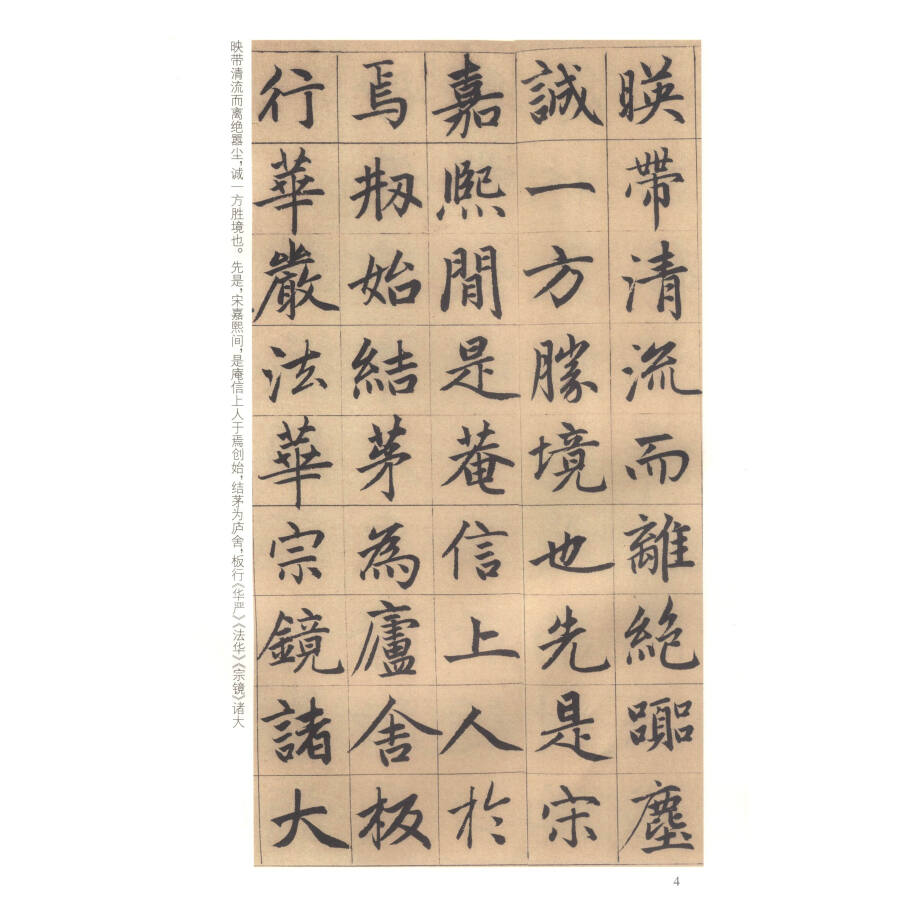 暎帶清流而離絶嚻塵
誠一方勝境也先是宋
嘉熙間是菴信上人於
焉剏始結茅為廬舍板
行華嚴法華宗鏡諸大
映带清流而离绝嚣尘，诚一方胜境也。先是，宋嘉熙间，是庵信上人于焉创始，结茅为庐舍，板行《华严》《法华》《宗镜》诸大
4